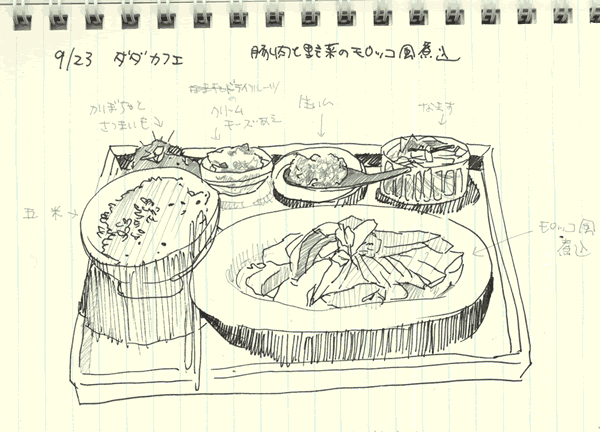 9/23 ダダカフェ 豚肉と野菜のモロッコ風煮込
かぼちゃと
さつまいも
ドライフルーツ
の
クリーム
チーズあえ
生ハム
なます
五 米
モロッコ風
煮込